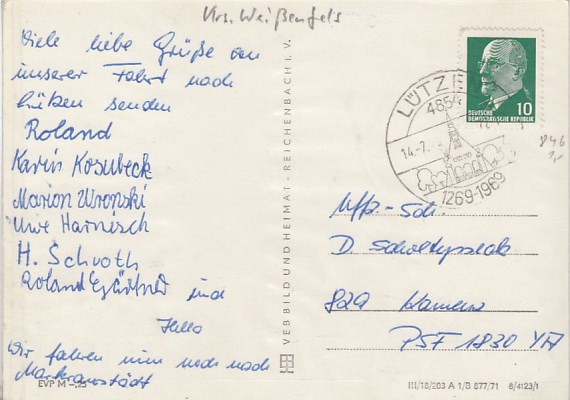 Krs. Weißenfels
Viele liebe Grüße von
unserer Fahrt nach
Lützen senden
Roland
Karin Kosubeck
Marion Wronski
Uwe Harnisch
H. Schroth
Roland Gärtner und
Hello
Wir fahren nun noch nach
Markranstädt
EVP M -,25
VEB BILD UND HEIMAT · REICHENBACH I. V.
LÜTZ
4854
14.-7.
1269-1969
10
DEUTSCHE
DEMOKRATISCHE REPUBLIK
846
Uffz.-Sch.
D.
829 Kamenz
PSF 1830
III/18/203 A 1/B 677/71 8/4123/1